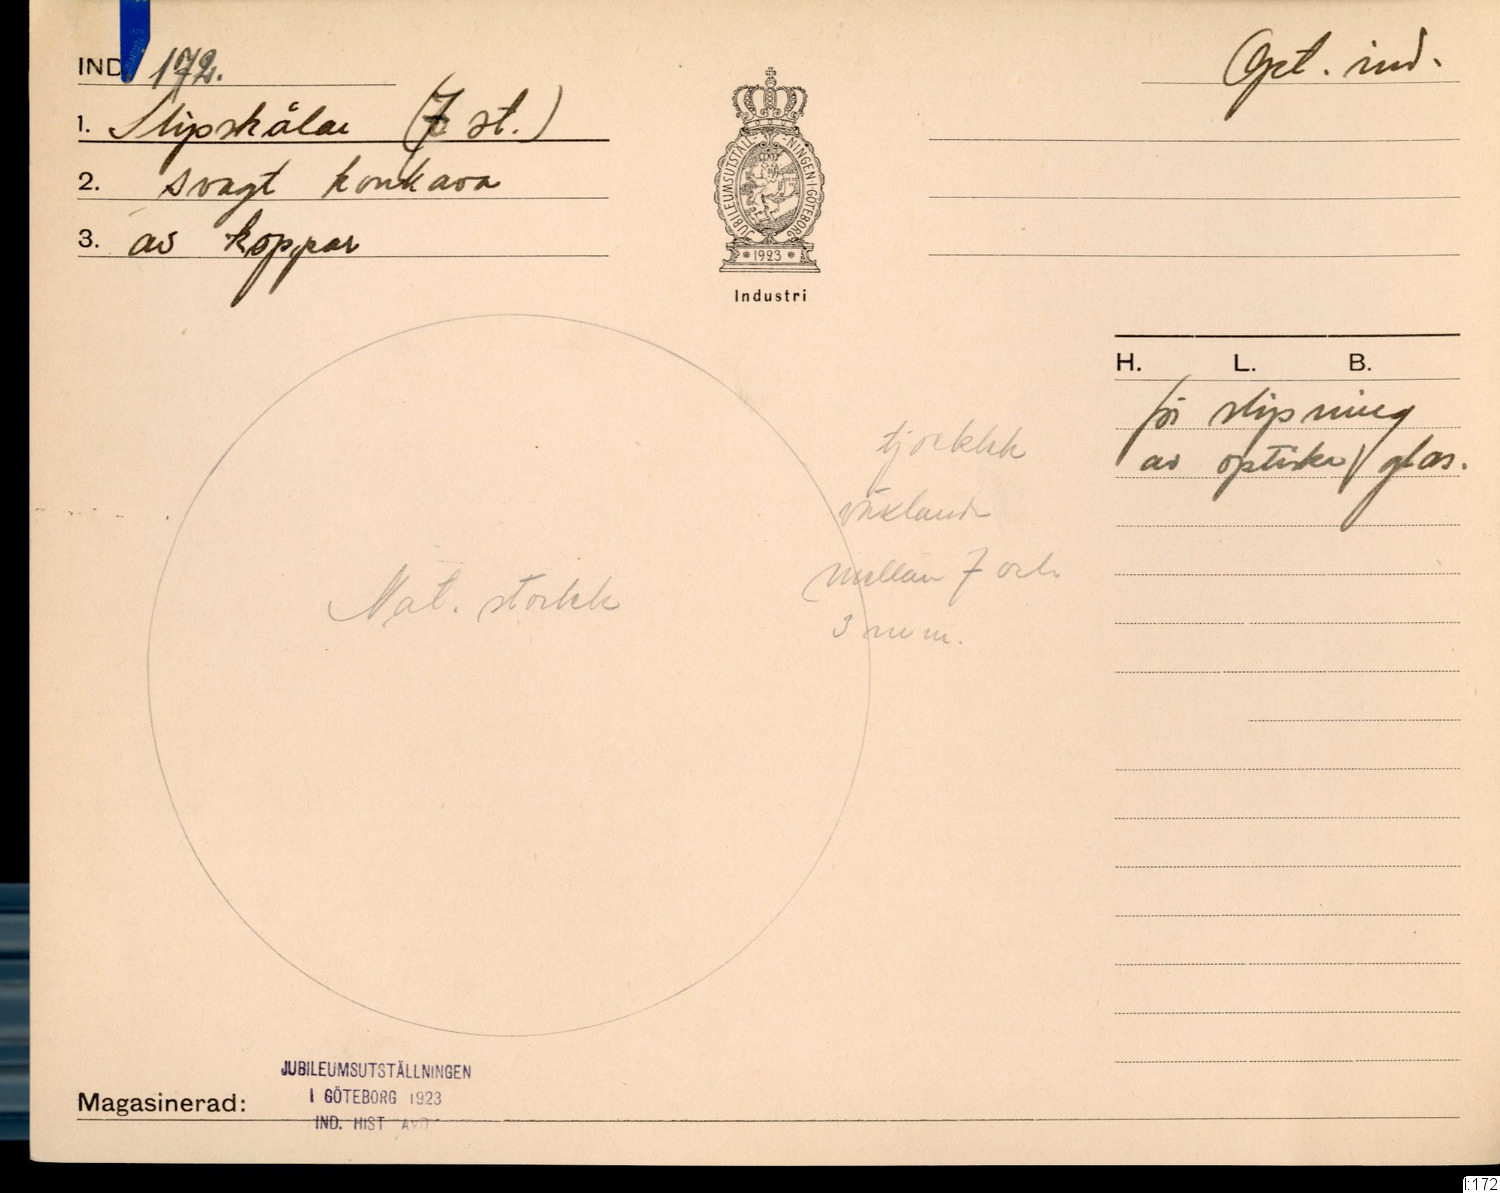 IND. 172.
Opt. ind.
1. Slipskålar (7 st.)
2. svagt konkava
3. av koppar
JUBILEUMSUTSTÄLLNINGEN·I·GÖTEBORG
* 1923 *
Industri
H. L. B.
för slipning
av optiska glas.
tjocklek
växlande
mellan 7 och
3 mm.
Nat. storlek
Magasinerad:
JUBILEUMSUTSTÄLLNINGEN
I GÖTEBORG 1923
IND. HIST AVD
I:172